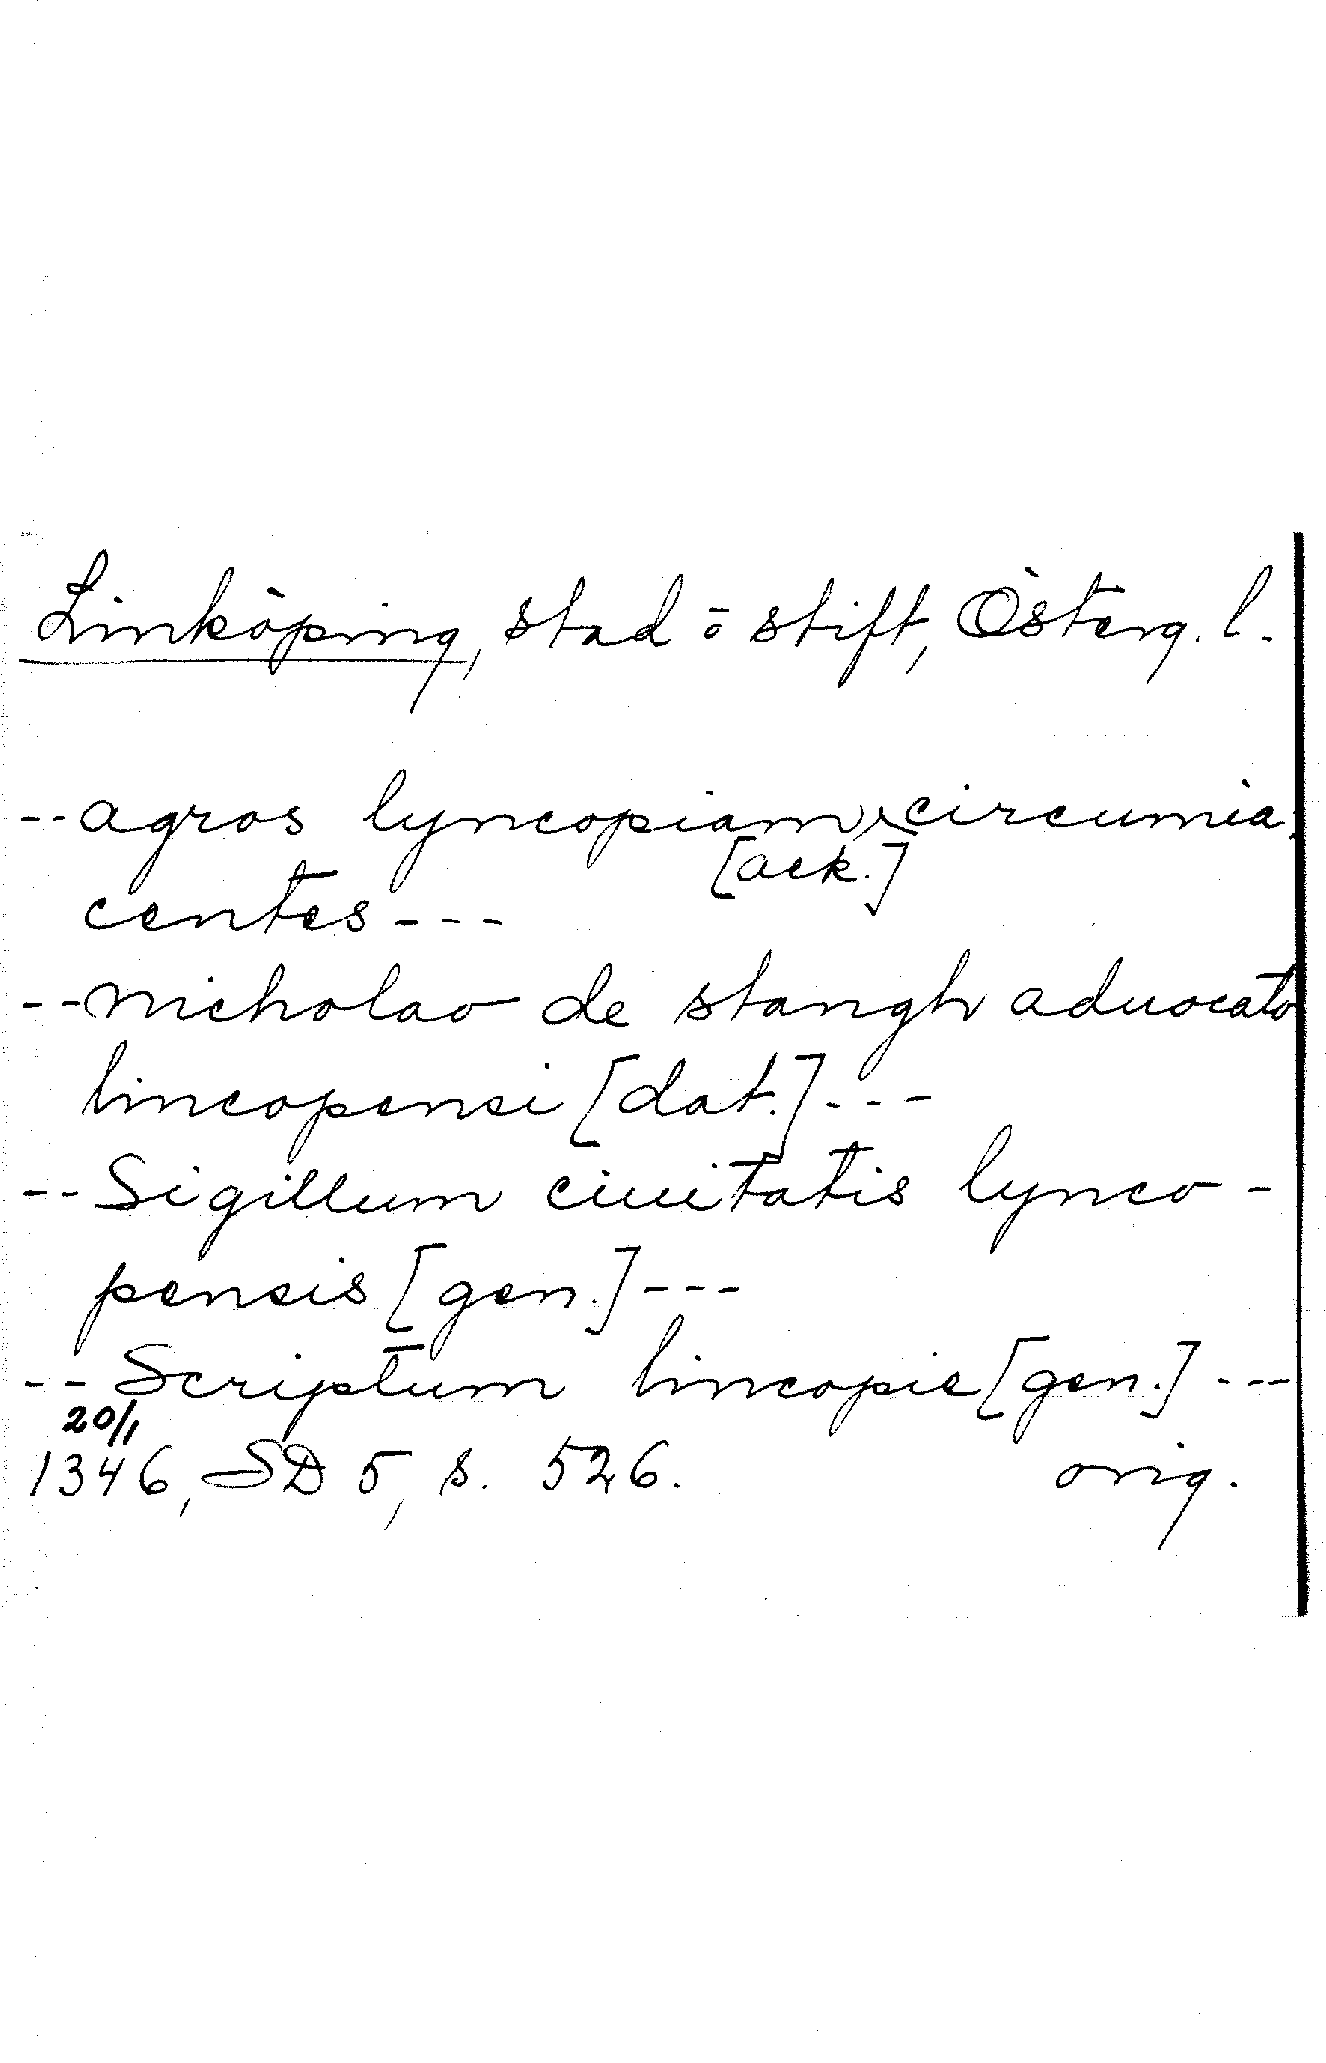 Linköping, stad ō stift, Österg. l.
--agros lyncopiam circumia
[ack.]
centes---
--Nicholao de stangh aduocato
lincopensi [dat.]---
--Sigillum ciuitatis lynco-
pensis [gen.]---
--Scriptum lincopie [gen.]---
20/1
1346, SD 5, s. 526. orig.